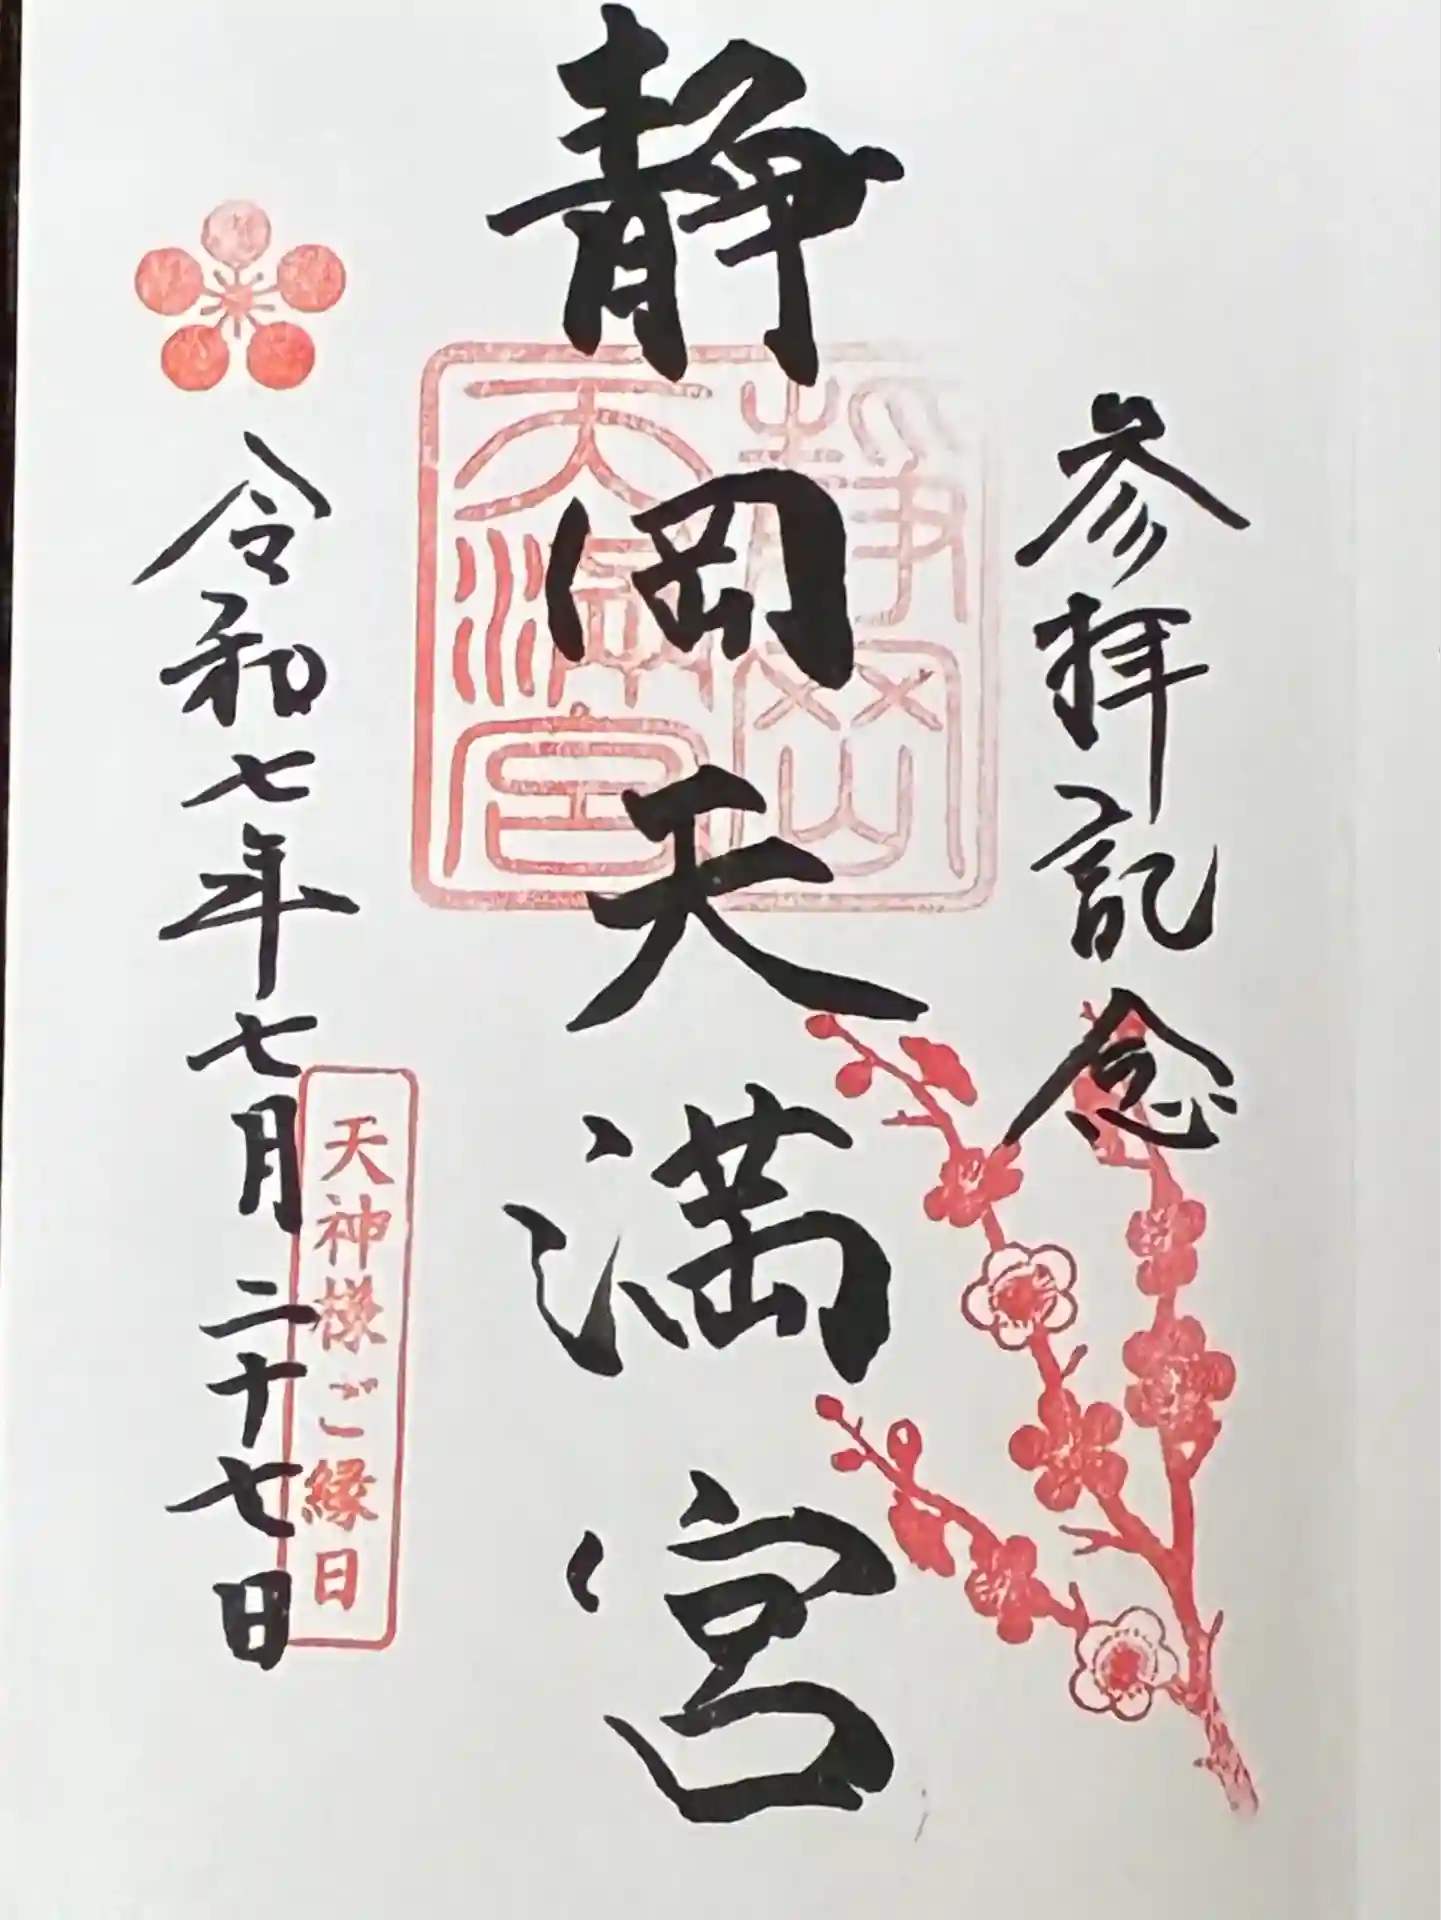 参拝記念
静岡天満宮
静岡
天満宮
天神様ご縁日
令和七年七月二十七日